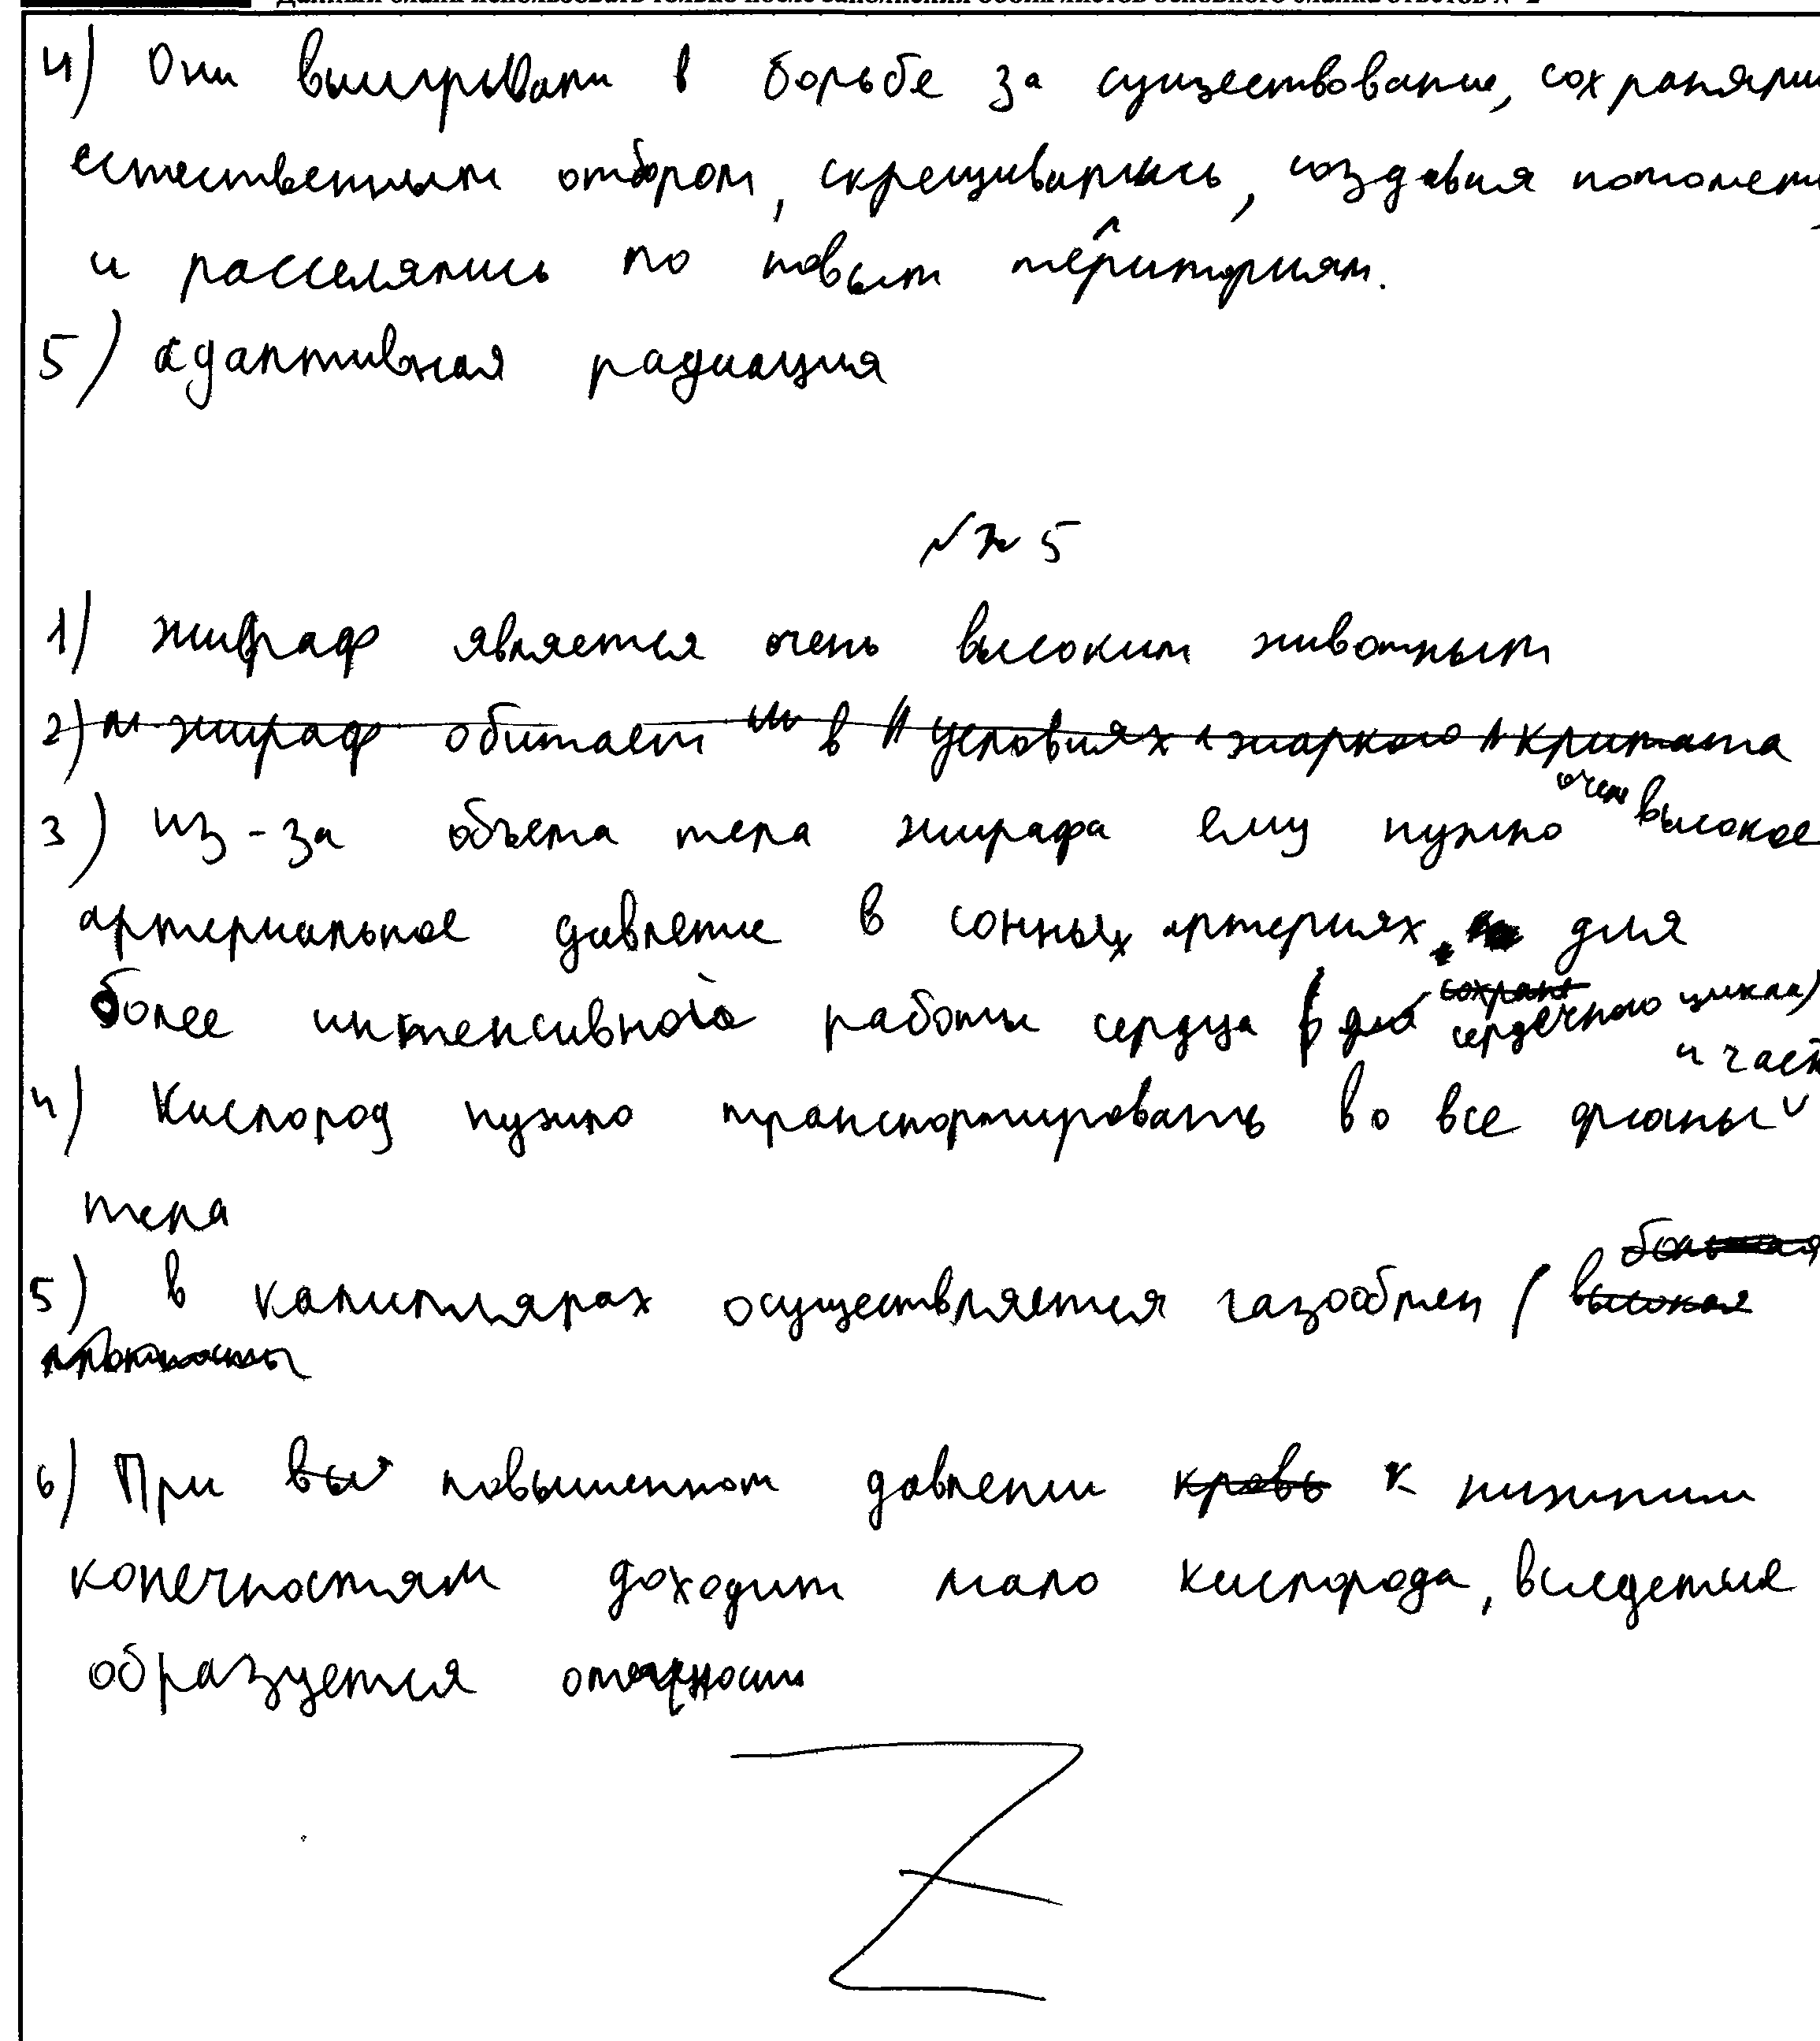 4) Они выигрывали в борьбе за существование, сохраняли
естественным отбором, скрещивались, создавая потомст
и расселялись по новым териториям.
5) адаптивная радиация
№ 5
1) жираф является очень высоким животным
2) жираф обитает в условиях жаркого климата
3) из-за объема тела жирафа ему нужно очень высокое
артериальное давление в сонных артериях для
более интенсивной работы сердца (для сохран сердечного цикла)
4) Кислород нужно транспортировать во все органы и част
тела
5) в капиллярах осуществляется газообмен ( большая высокая
6) При вы повышенном давлении кровь к нижним
конечностям доходит мало кислорода, вследствие
образуется отечность